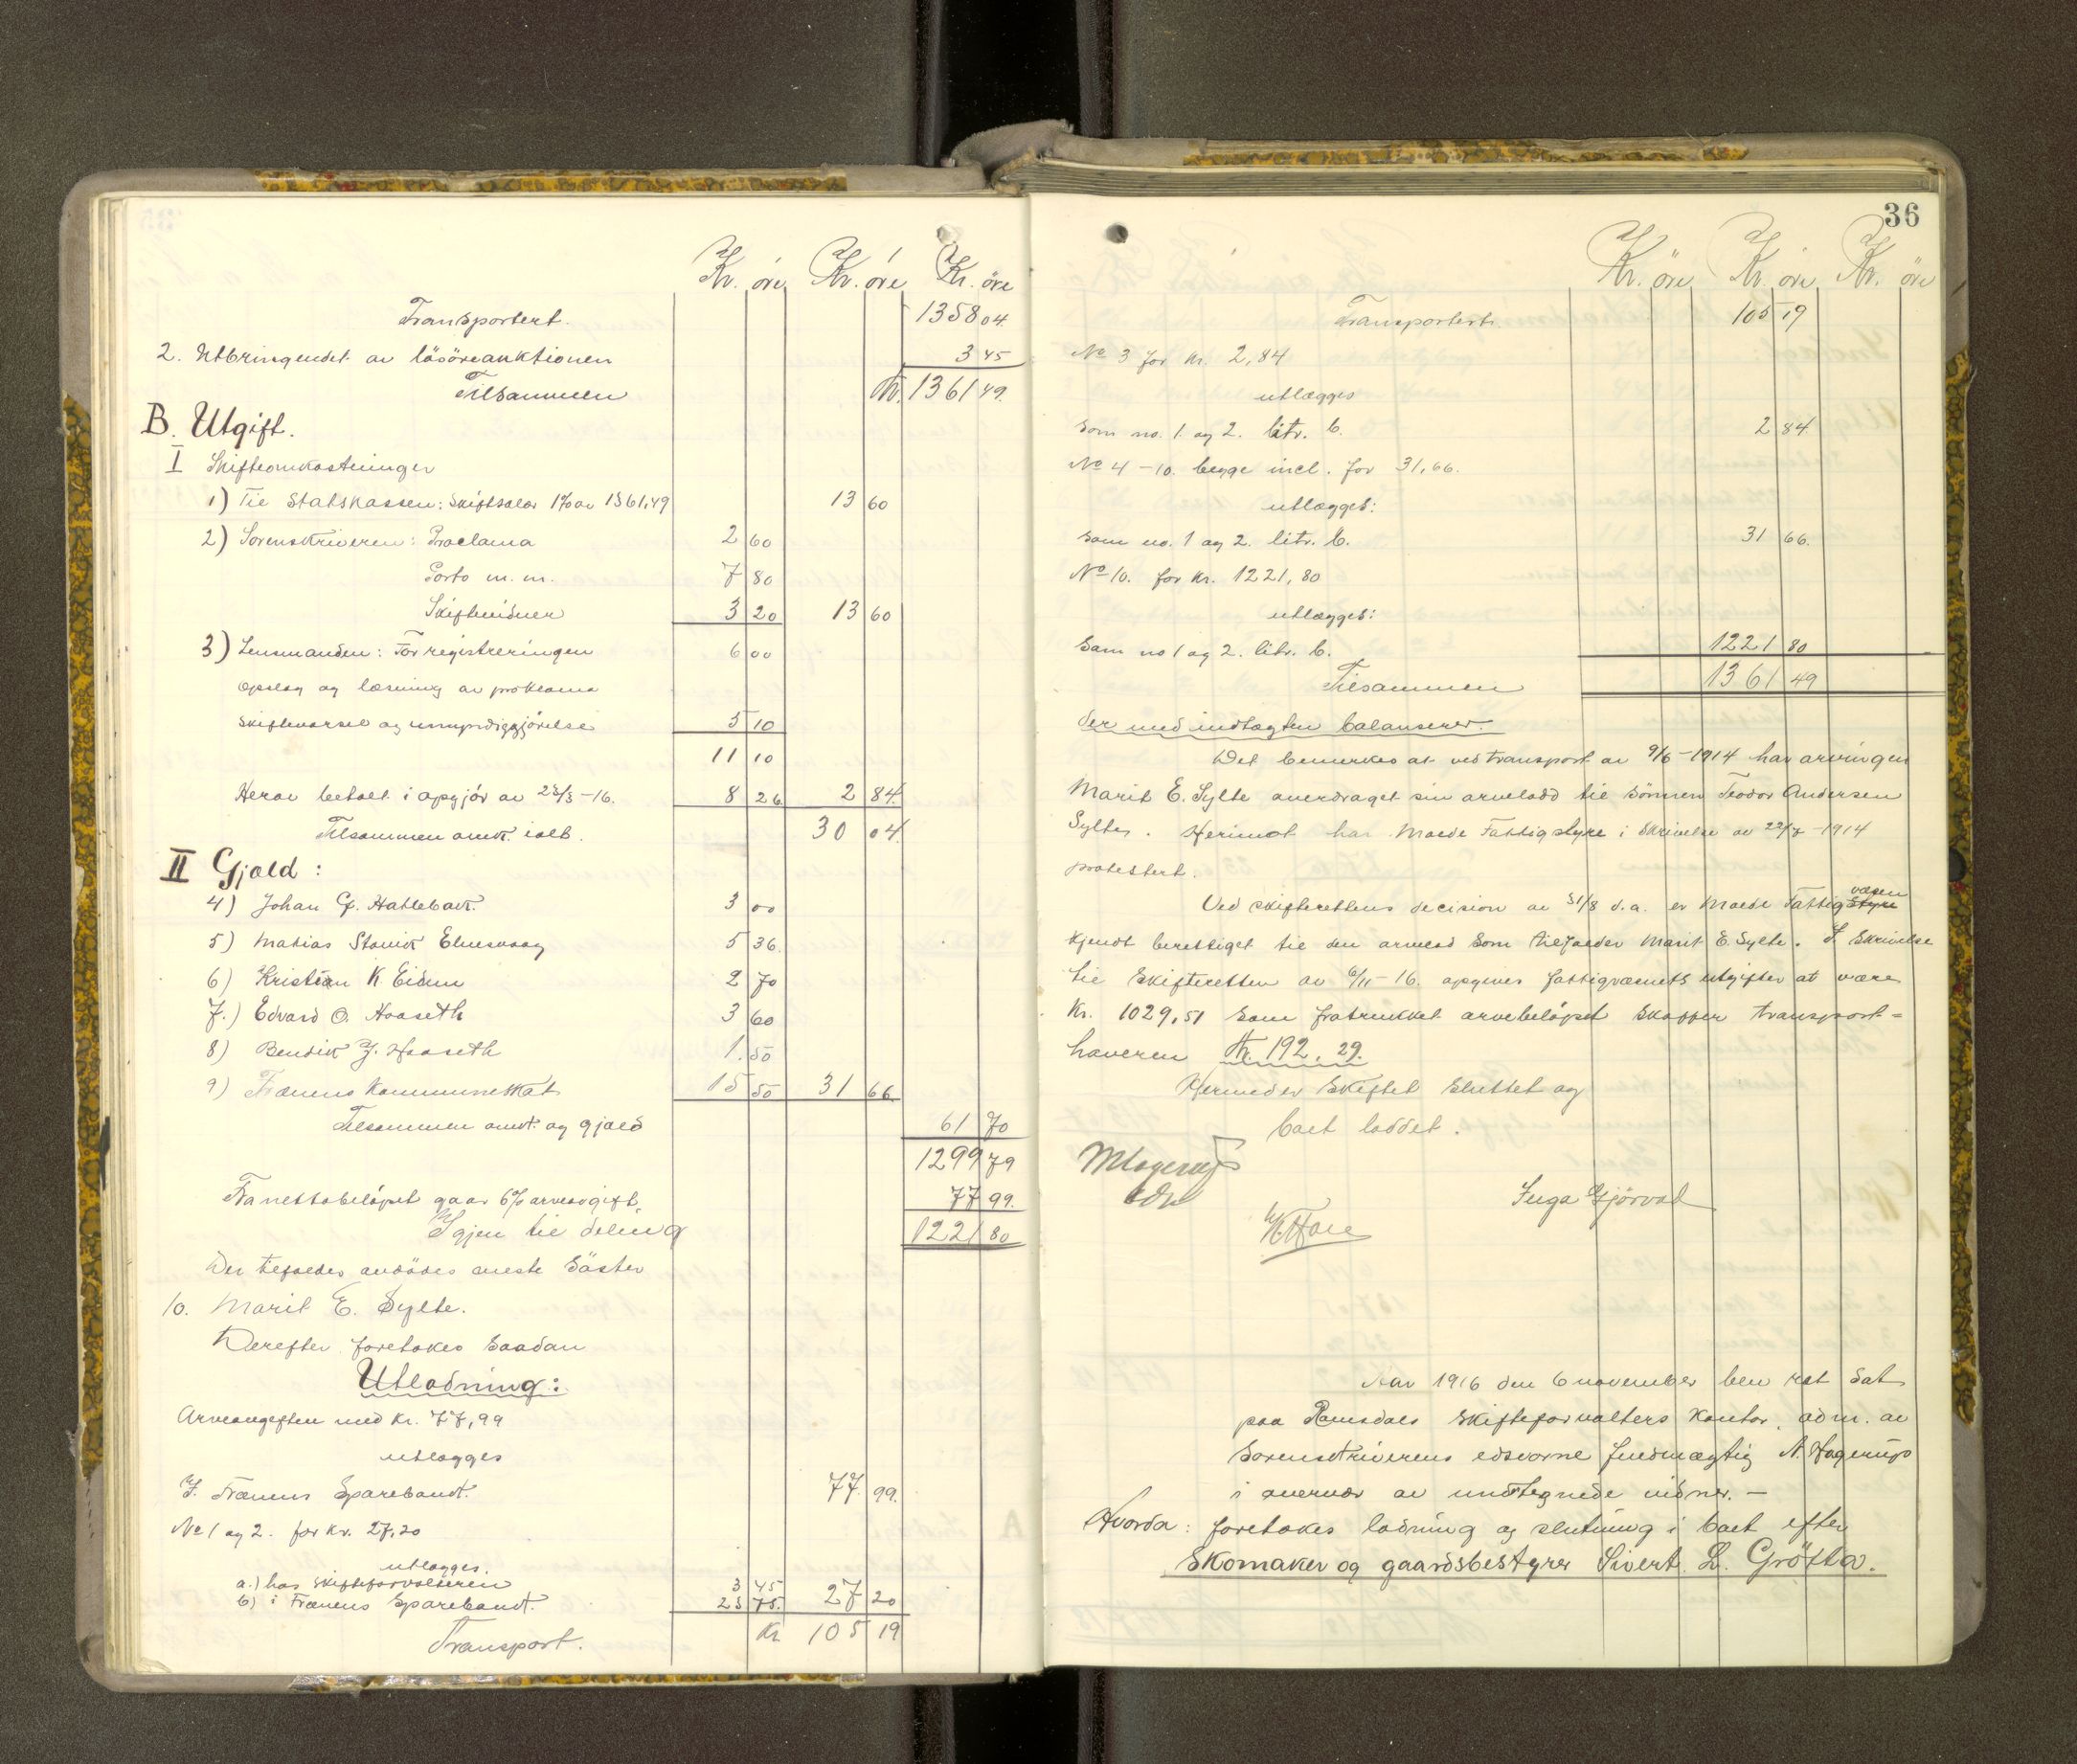 Kr. öre Kr. öre Kr. öre
Transportert. 1358 04.
2. Utbringendet av lösöreauktionen 3 45
Tilsammen Kr. 1361 49.
B. Utgift.
I Skifteomkostninger
1) Til Statskassen: Skiftsalær 1% av 1361,49 13 60
2) Sorenskriveren: Proclama 2 60
Porto m. m. 7 80
Skiftevidner 3 20 13 60
3) Lensmanden: For registreringen 6 00
Opslag og læsning av proklama
Skiftevarsel og umyndiggjörelse 5 10
11 10
Herav betalt i opgjör av 23/3-16. 8 26 2 84.
Tilsammen omk. ialt. 30 04.
II Gjæld:
4) Johan G. Hatlebak. 3 00
5) Matias Stavik Elnesvaag 5 36.
6) Kristian K Eidem 2 70
7.) Edvard O. Haaseth 3 60
8) Bendik J. Haaseth 1. 50
9) Frænens Kommuneskat 15 50 31 66.
Tilsammen omk. og gjæld 61 70
1299 79
Fra nettobelöpet gaar 6% arveavgift, 77 99.
Igjen til deling 1221 80
Der tilfaldes avdödes eneste Söster
10. Marit E. Sylte.
Derefter foretokes saadan
Utlodning:
Arveavgiften med kr. 77,99
utlægges
I. Frænens Sparebank. 77. 99.
No 1 og 2. for kr. 27,20
utlægges.
a.) hos skifteforvalteren 3 45
b) i Frænens Sparebank. 23 75. 27 20
Transport. Kr 105 19
36
Kr. öre Kr. öre Kr. öre
Transportert. 105 19
No 3 for kr. 2,84
utlægges
Som no. 1. og 2. litr. b. 2 84.
No 4-10. begge incl. for 31,66.
utlægges:
Som no. 1 og 2. litr. b. 31 66.
No 10. for kr. 1221,80
utlægges:
Som no 1 og 2. litr. b. 1221 80
Tilsammen 1361 49
der med indtægten balanserer.
Det bemerkes at ved transport av 9/6-1914 har arvingen
Marit E. Sylte overdraget sin arvelodd til sönnen Teodor Andersen
Sylte. Herimot har Molde Fattigstyre i Skrivelse av 22/7-1914
protestert.
Ved skifterettens decision av 31/8 d.a. er Molde Fattigstyre væsen
kjendt berettiget til den arvelod som tilfalder Marit E. Sylte. I Skrivelse
til Skifteretten av 6/11-16. opgives fattigvæsnets utgifter at være
Kr. 1029,51 som fratrukket arvebelöpet skaffer transport=
haveren Kr. 192,29.
Hermed er Skiftet Sluttet og
boet loddet.
NHagerup
edsv
Inga Gjörvad
Aar 1916 den 6 november blev ret sat
paa Romsdals Skifteforvalters kontor, adm. av
Sorenskriverens edsvorne fuldmægtig N. Hagerup
i overvær av undtegnede vidner. —
Hvorda: foretokes lodning og slutning i boet efter
Skomaker og gaardsbestyrer Sivert L. Gröfta.